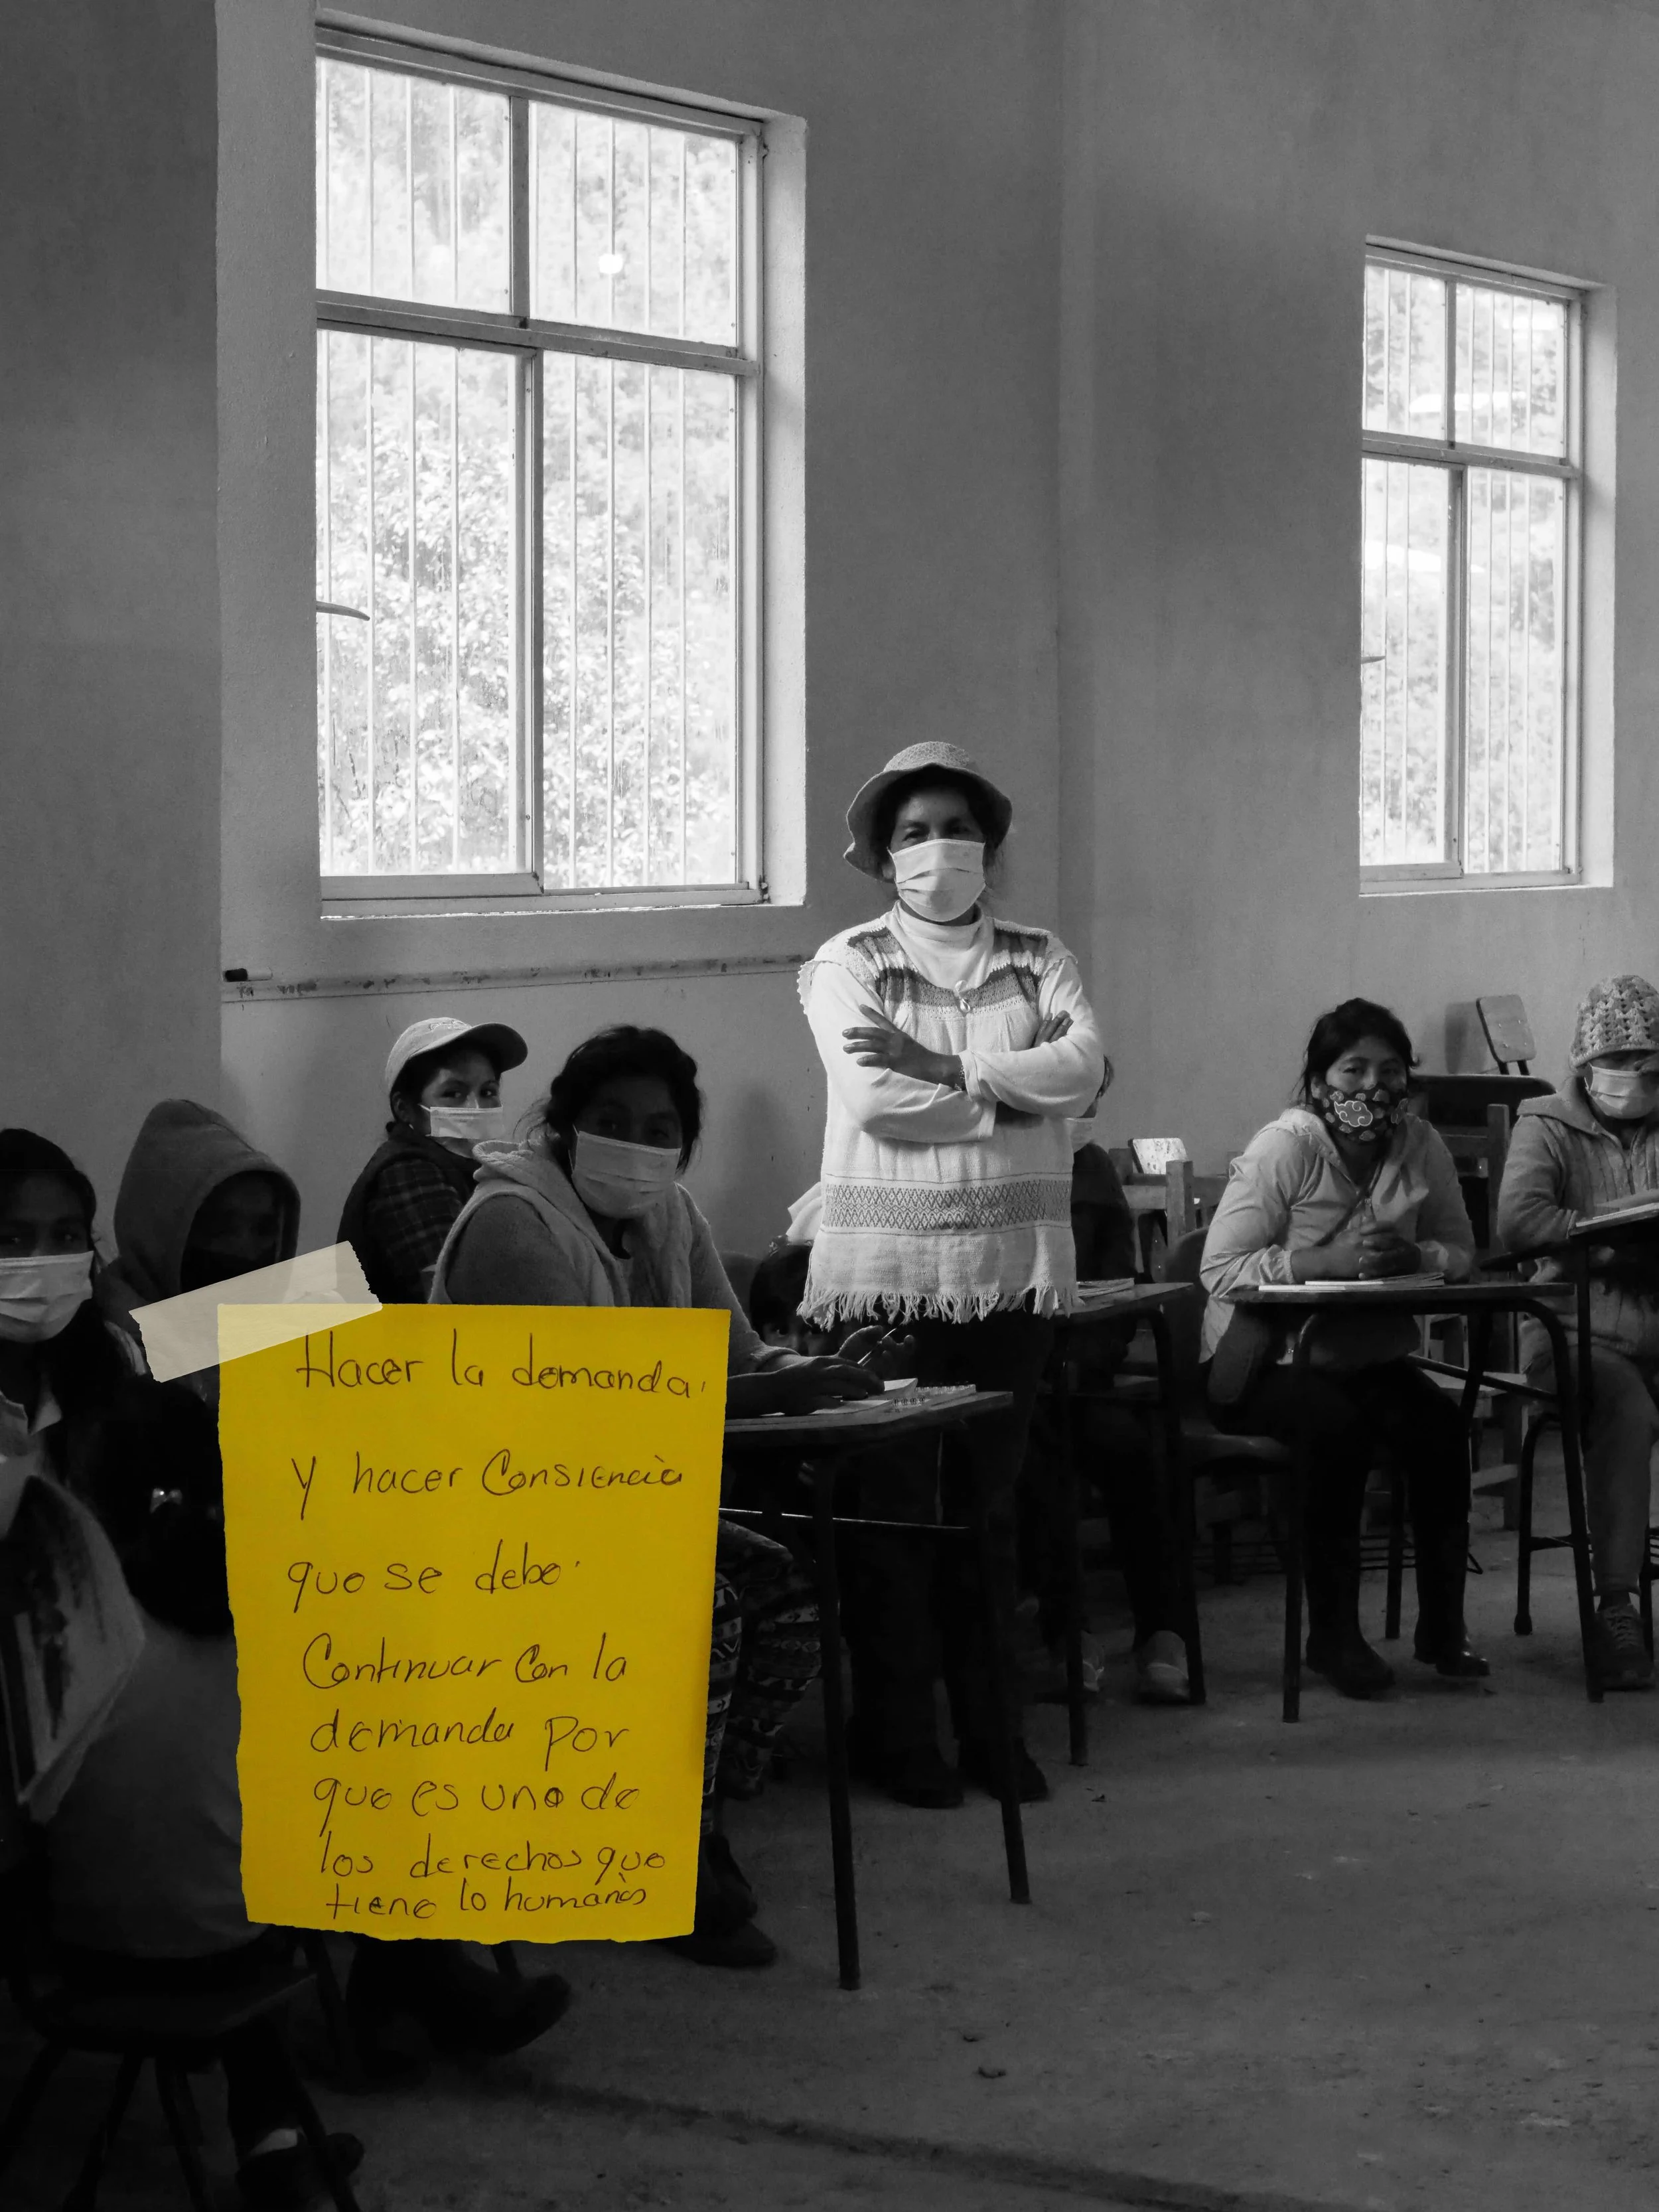 Hacer la demanda.
y hacer Consiencia
que se debe.
Continuar Con la
demanda por
que es uno de
los derechos que
tiene lo humanos